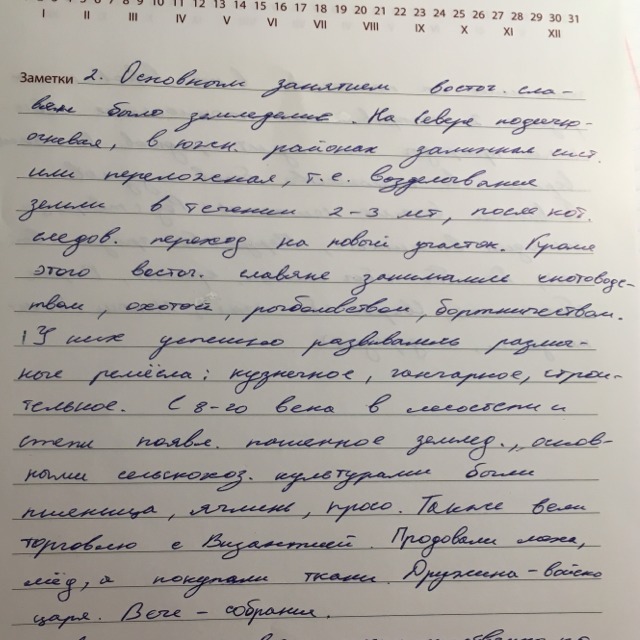 10 11 12 13 14 15 16 17 18 19 20 21 22 23 24 25 26 27 28 29 30 31
I II III IV V VI VII VIII IX X XI XII
Заметки 2. Основным занятием восточ. сла-
вян было земледелие. На Севере подсечно-
огневая, в южн. районах залижная сист.
или переложная, т.е. возделывание
земли в течении 2-3 лет, после кот.
следов. переход на новый участок. Кроме
этого восточ. славяне занимались скотоводс-
твом, охотой, рыболовством, бортничеством.
У них успешно развивались различ-
ные ремёсла: кузнечное, гончарное, строи-
тельное. С 8-го века в лесостепи и
степи появл. пашенное землед., основ-
ными сельскохоз. культурами были
пшеница, ячмень, просо. Также вели
торговлю с Византией. Продовали меха,
мёд, а покупали ткани. Дружина - войско
царя. Вече - собрание.